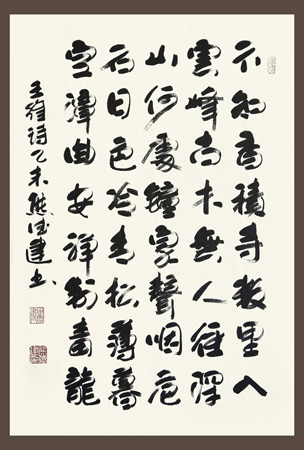 不知香積寺數里入
雲峰古木無人徑深
山何處鐘泉聲咽危
石日色冷青松薄暮
空潭曲安禪制毒龍
王維詩乙未熊建书